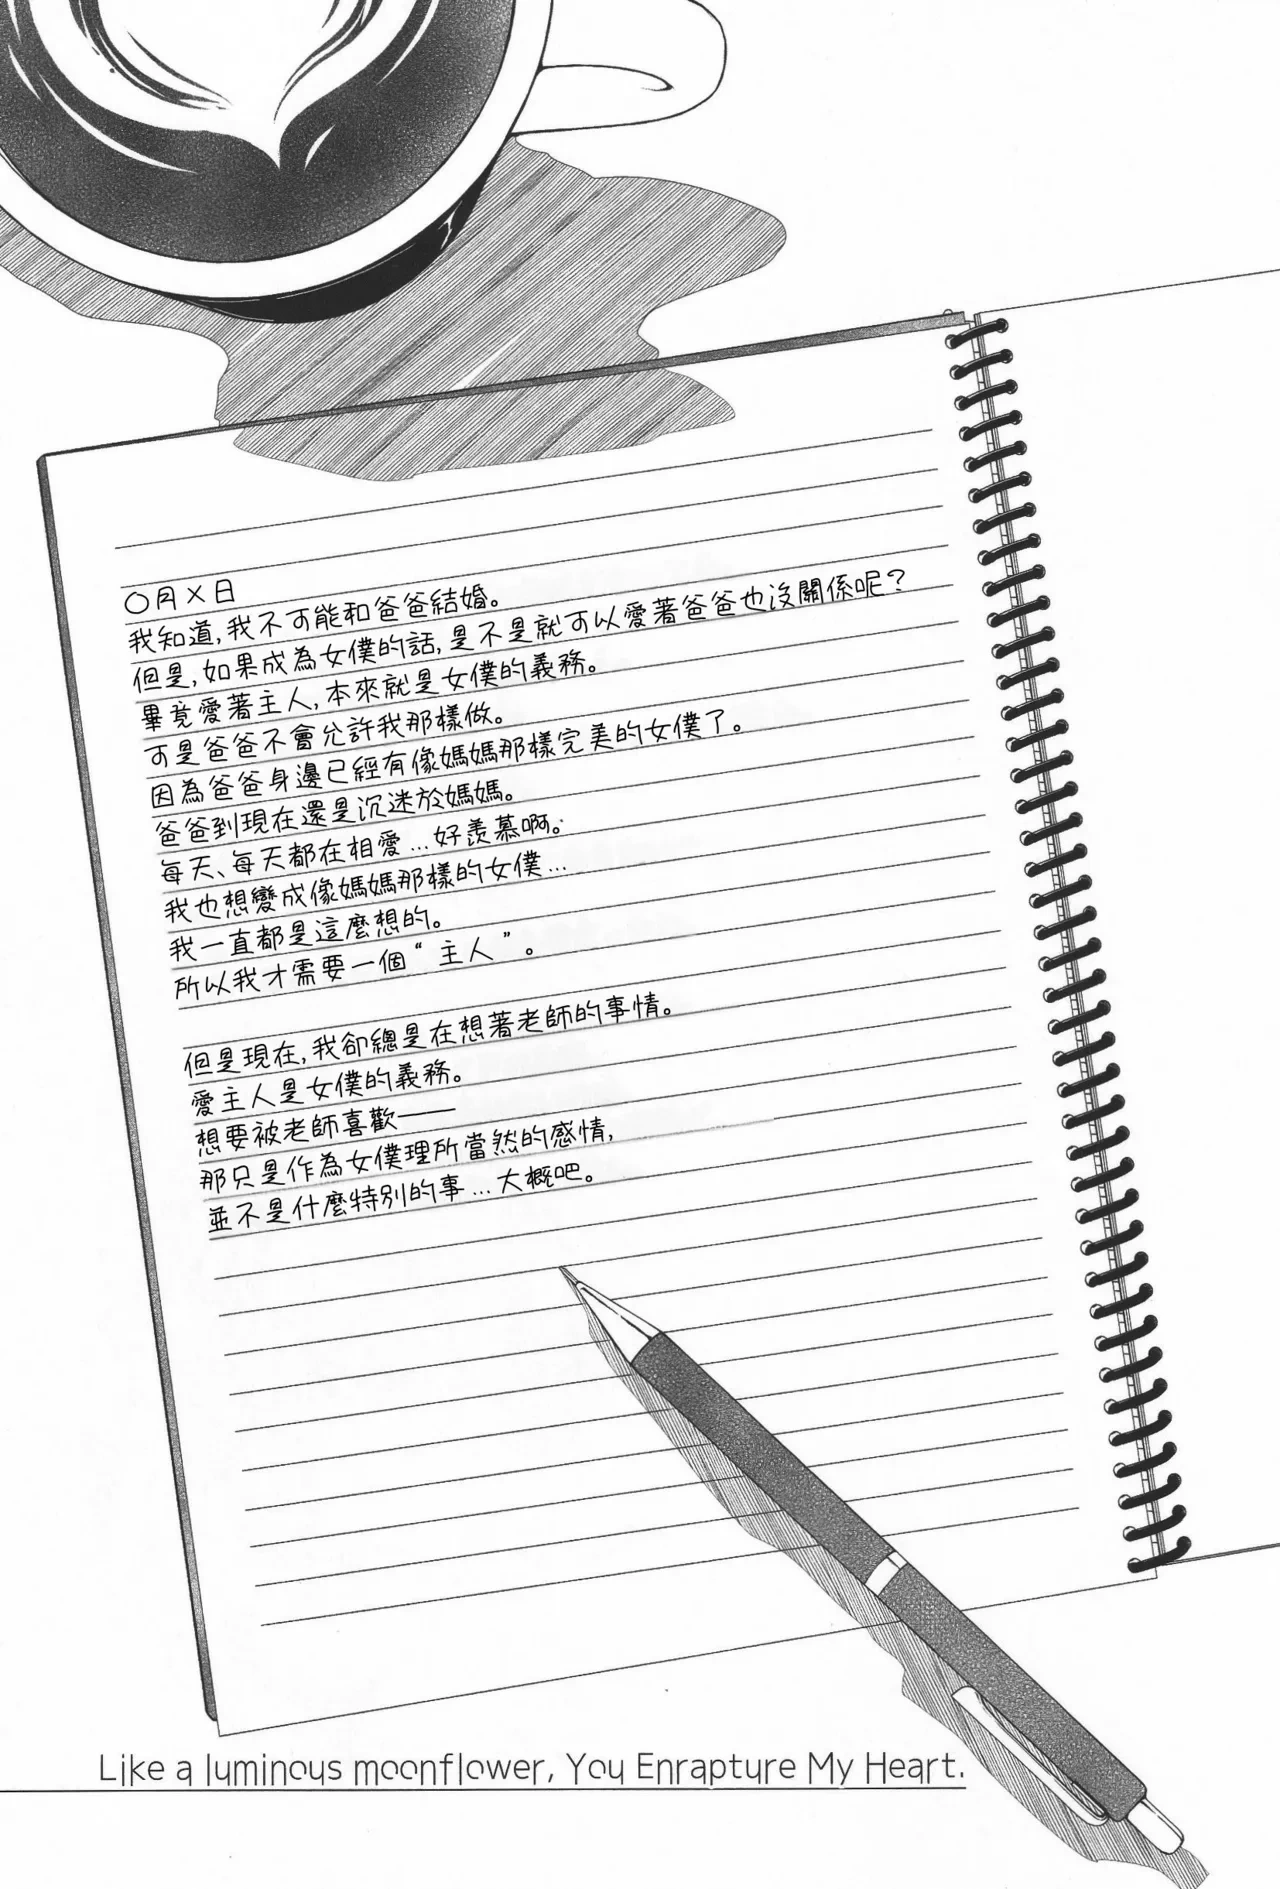 ○月×日
我知道,我不可能和爸爸結婚。
但是,如果成為女僕的話,是不是就可以愛著爸爸也沒關係呢?
畢竟愛著主人,本來就是女僕的義務。
可是爸爸不會允許我那樣做。
因為爸爸身邊已經有像媽媽那樣完美的女僕了。
爸爸到現在還是沉迷於媽媽。
每天、每天都在相愛…好羨慕啊。
我也想變成像媽媽那樣的女僕…
我一直都是這麼想的。
所以我才需要一個“主人”。
但是現在,我卻總是在想著老師的事情。
愛主人是女僕的義務。
想要被老師喜歡——
那只是作為女僕理所當然的感情,
並不是什麼特別的事…大概吧。
Like a luminous moonflower, You Enrapture My Heart.